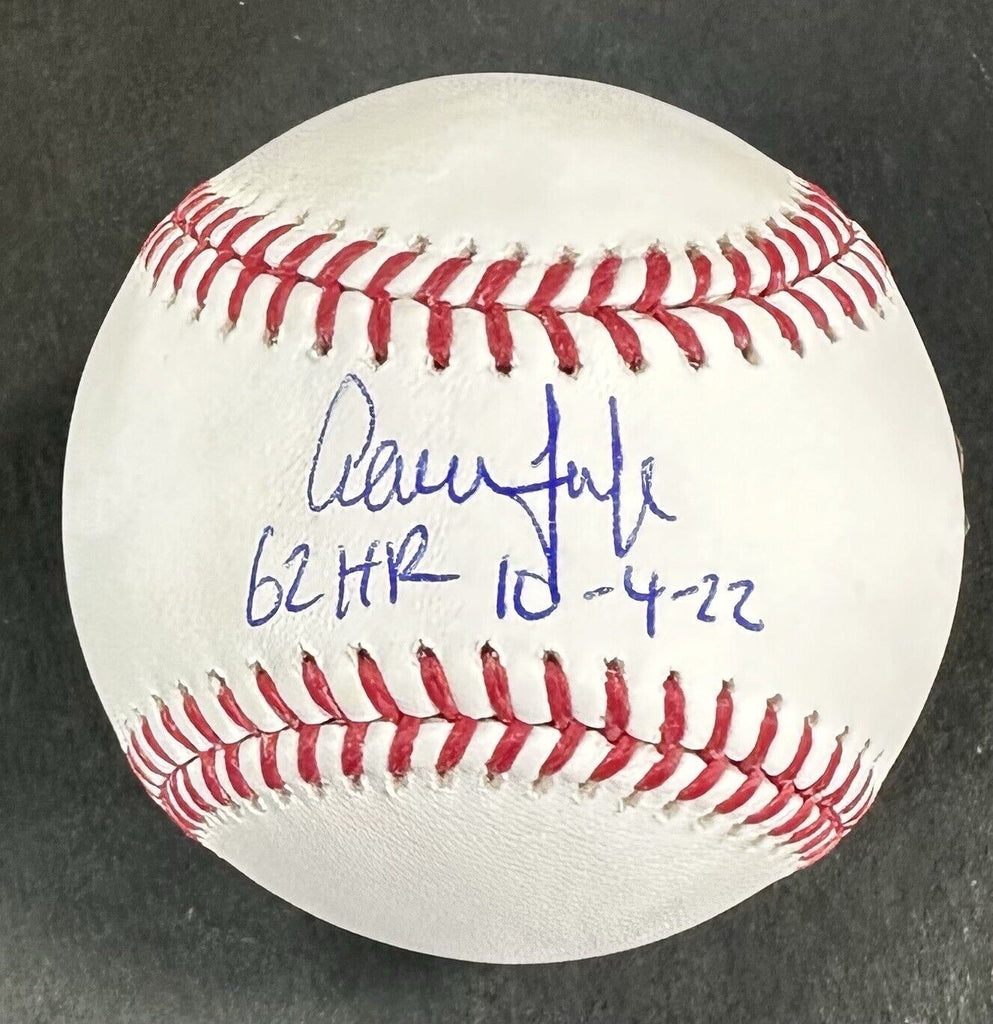 Aaron Judge
62 HR 10-4-22